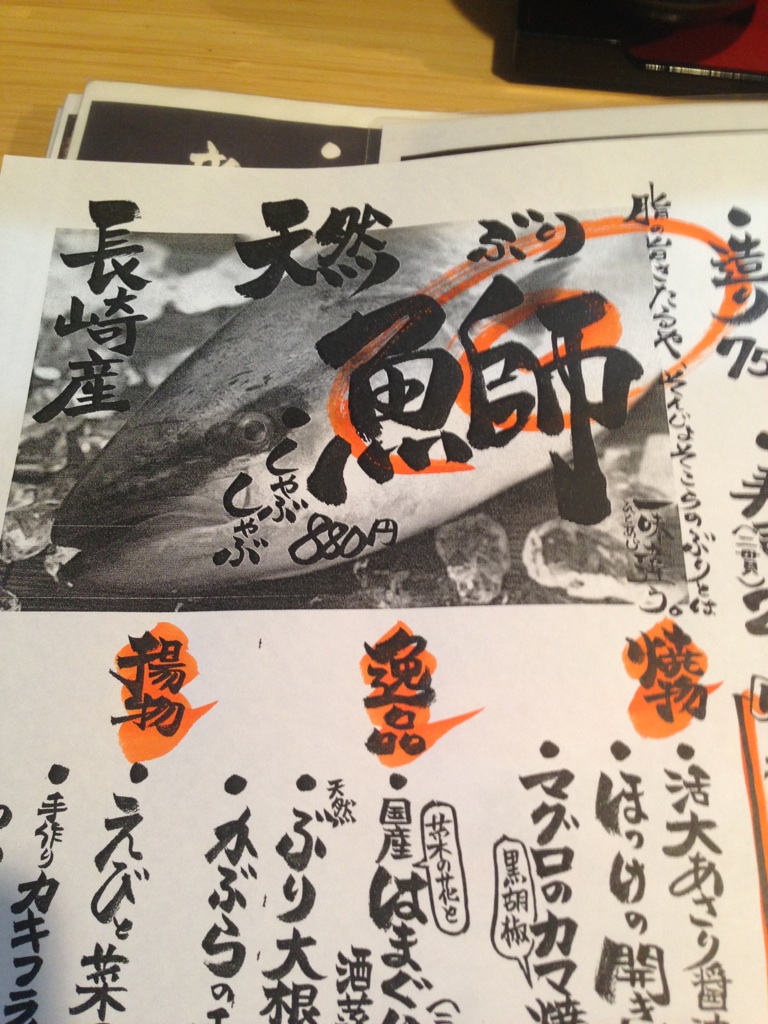 造り
長崎産
天然
ぶり
鰤
脂の旨さたるや
そんじょそこらのぶりとは
一味違う。
ひとあじ
・しゃぶ
しゃぶ
880円
焼物
・活大あさり醤
・ほっけの開き
・マグロのカマ焼
黒胡椒
逸品
・国産はまぐり
菜の花と
酒蒸
・天然ぶり大根
・かぶらの
揚物
・えびと菜
・手作りカキフラ